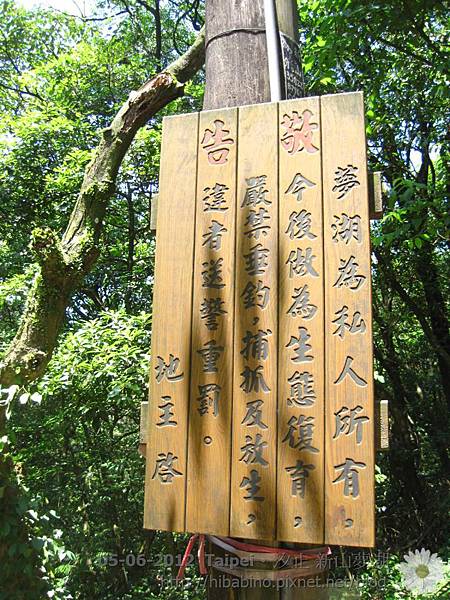 敬告
夢湖為私人所有，
今後做為生態復育，
嚴禁垂釣，捕抓及放生，
違者送警重罰。
地主啓
05-06-2012 Taipei 夕止 新山夢湖
http://hibabino.pixnet.net/blog